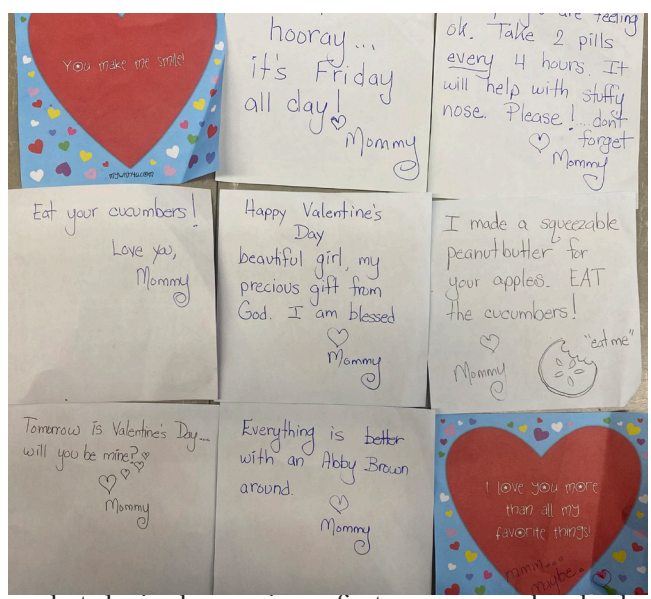 You make me smile!
mywhimu.com
hooray...
it's Friday
all day!
Mommy
are feeling
ok. Take 2 pills
every 4 hours. It
will help with stuffy
nose. Please! ... don't
forget
Mommy
Eat your cucumbers!
Love you,
Mommy
Happy Valentine's
Day
beautiful girl, my
precious gift from
God. I am blessed
Mommy
I made a squeezable
peanutbutter for
your apples. EAT
the cucumbers!
"eat me"
Mommy
Tomorrow is Valentine's Day...
will you be mine?
Mommy
Everything is better
with an Abby Brown
around.
Mommy
I love you more
than all my
favorite things!
mmm...
maybe..